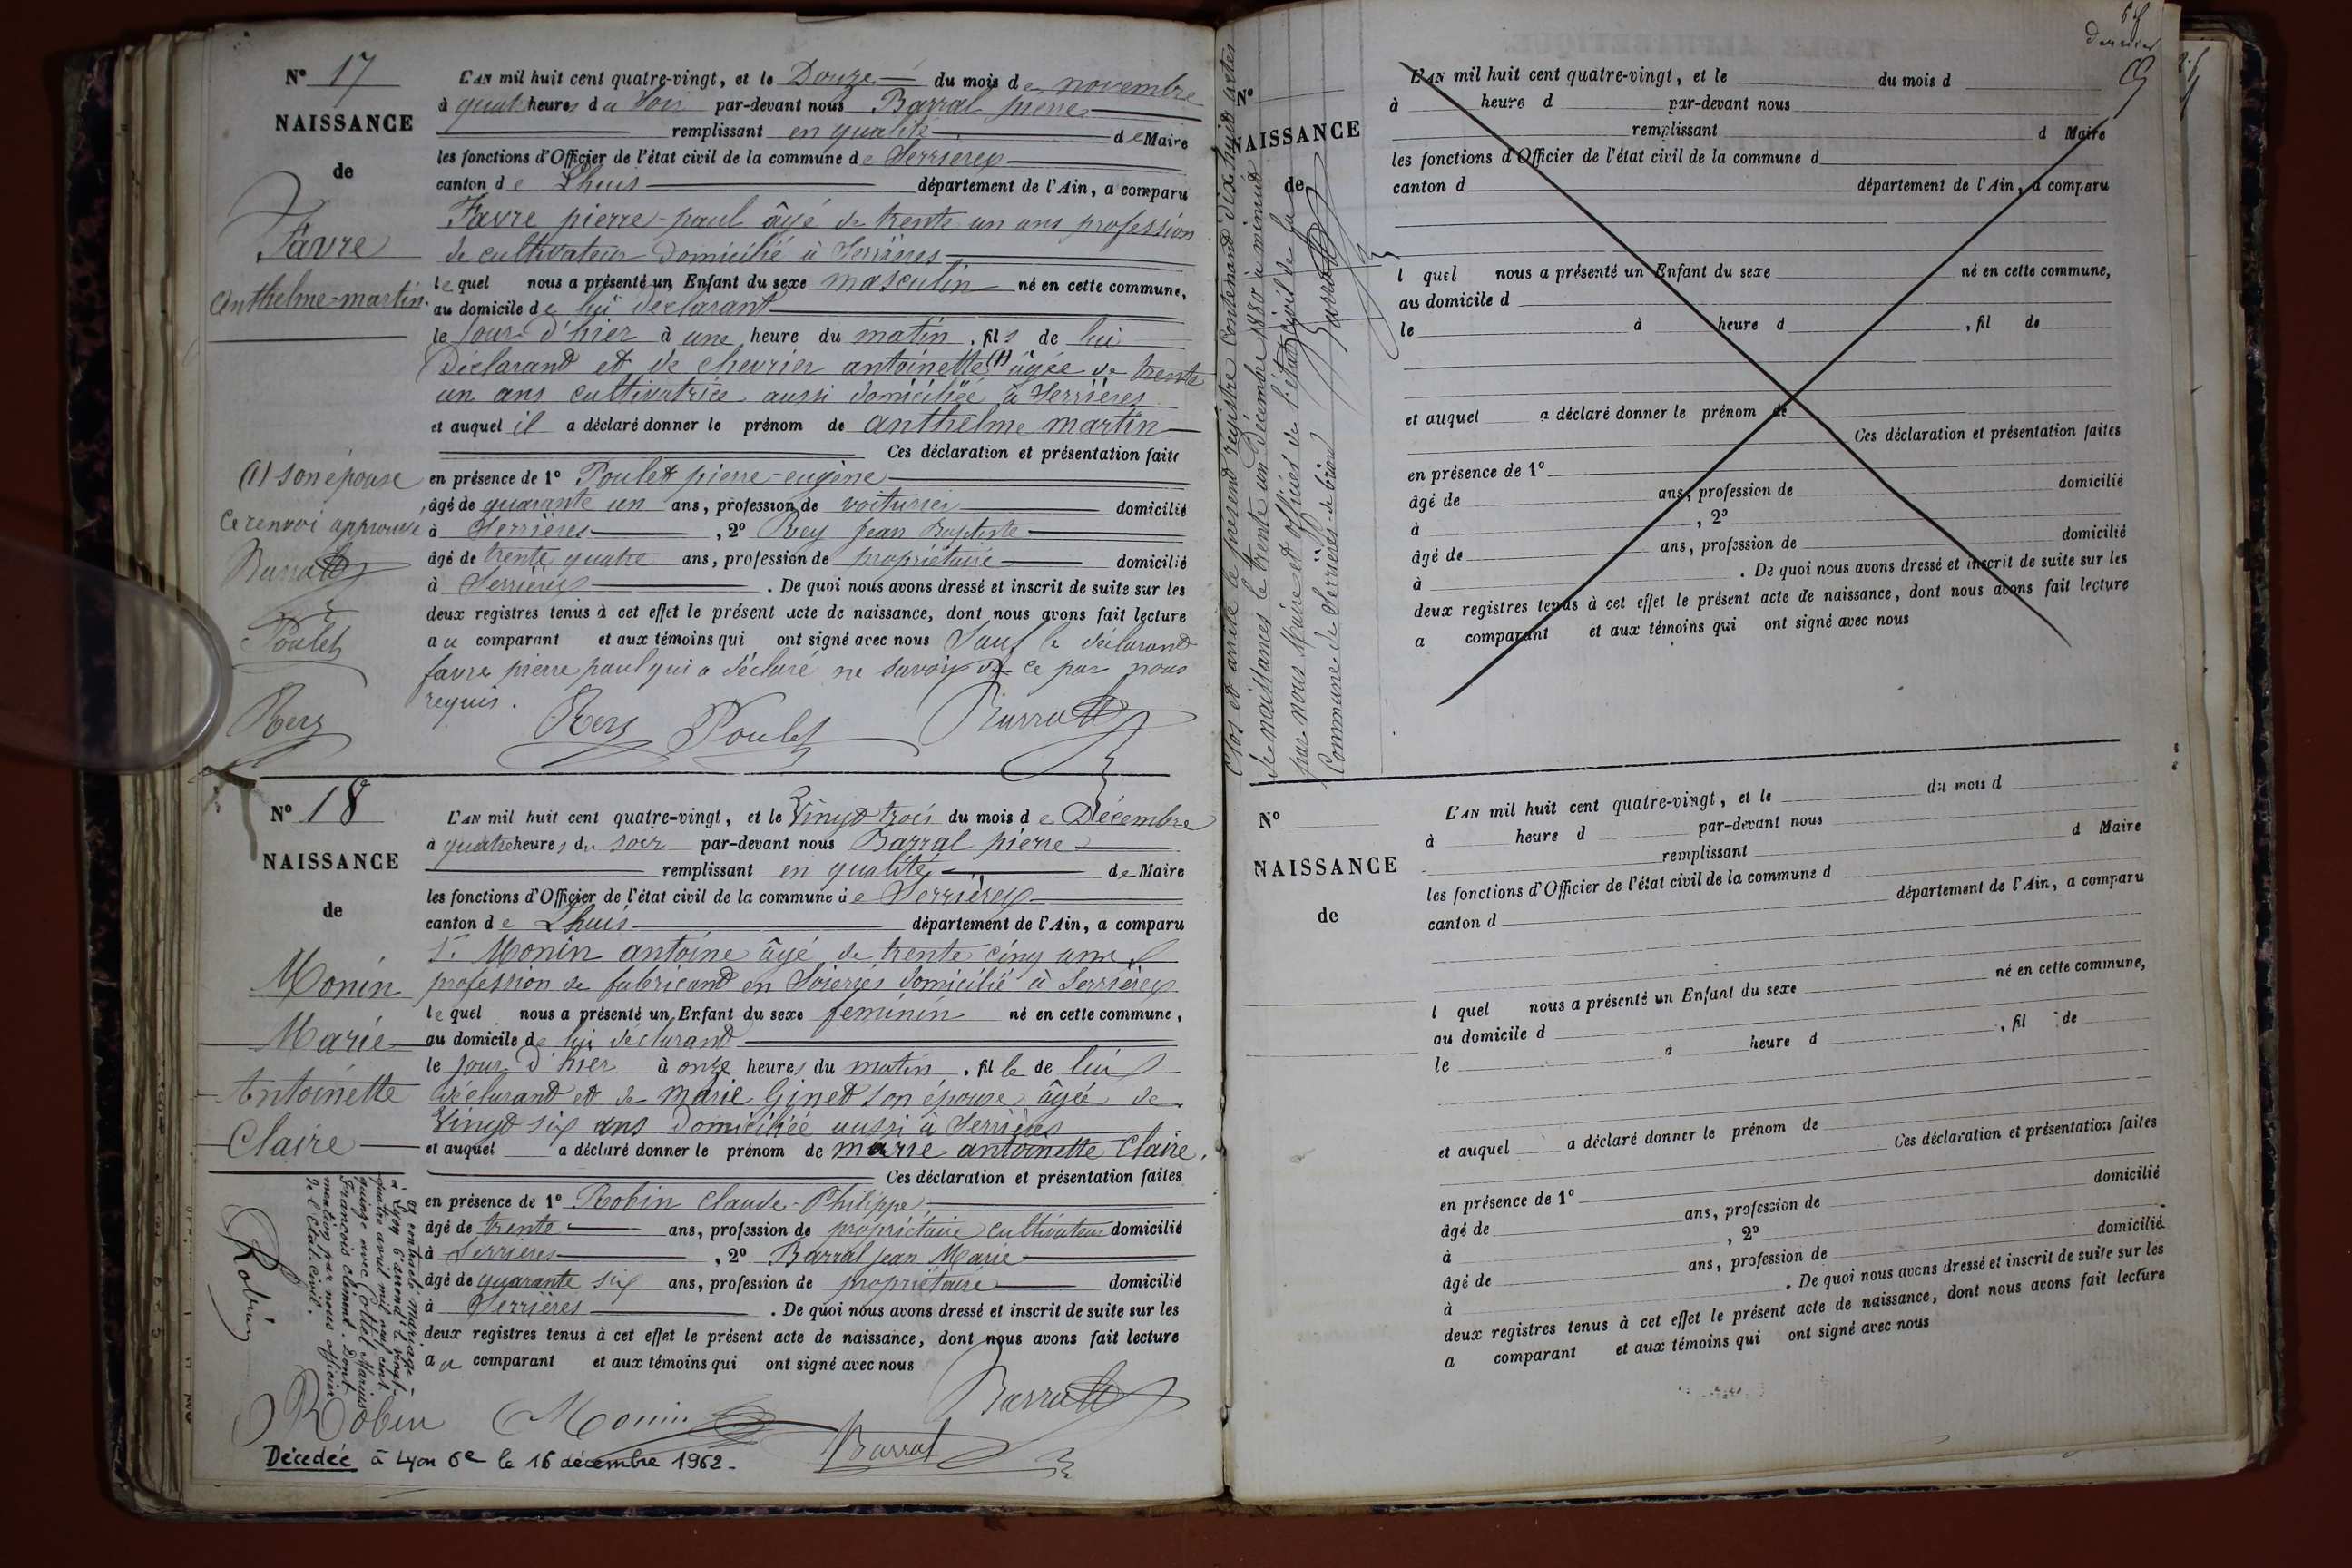 N° 17
NAISSANCE
de
Favre
Anthelme-martin.
L'AN mil huit cent quatre-vingt, et le Douze du mois de novembre
à quatre heures du Soir par-devant nous Barral pierre
remplissant en qualité de Maire
les fonctions d'Officier de l'état civil de la commune de Serrières
canton de Lhuis département de l'Ain, a comparu
Favre pierre-paul âgé de trente un ans profession
de cultivateur Domicilié à Serrières
lequel nous a présenté un Enfant du sexe masculin né en cette commune,
au domicile de lui déclarant
le Jour d'hier à une heure du matin, fils de lui
Déclarand et de chevrier antoinette (1) âgée de trente
un ans cultivatrice aussi domiciliée à Serrières
et auquel il a déclaré donner le prénom de anthelme martin
Ces déclaration et présentation faite
en présence de 1° Poulet pierre-eugène
âgé de quarante un ans, profession de voiturier domicilié
à Serrières, 2° Rey Jean Baptiste
âgé de trente quatre ans, profession de propriétaire domicilié
à Serrières. De quoi nous avons dressé et inscrit de suite sur les
deux registres tenus à cet effet le présent acte de naissance, dont nous avons fait lecture
au comparant et aux témoins qui ont signé avec nous Sauf le déclarand
favre pierre paul qui a déclaré ne savoir de ce par nous
requis.
(1) son épouse
Ce renvoi approuvé
Barral
Poulet
Rey
Rey Poulet Barral
N° 18
NAISSANCE
de
Monin
Marie
Antoinette
Claire
L'AN mil huit cent quatre-vingt, et le Vingt trois du mois de Décembre
à quatre heures du soir par-devant nous Barral pierre
remplissant en qualité de Maire
les fonctions d'Officier de l'état civil de la commune de Serrières
canton de Lhuis département de l'Ain, a comparu
Sr Monin antoine âgé de trente cinq ans
profession de fabricand en Soieries domicilié à Serrières
lequel nous a présenté un Enfant du sexe féminin né en cette commune,
au domicile de lui déclarand
le Jour d'hier à onze heures du matin, fille de lui
déclarand et de Marie Ginet son épouse âgée de
Vingt six ans Domiciliée aussi à Serrières
et auquel a déclaré donner le prénom de marie antoinette Claire.
Ces déclaration et présentation faites
en présence de 1° Robin Claude-Philippe
âgé de trente ans, profession de propriétaire cultivateur domicilié
à Serrières, 2° Barral Jean Marie
âgé de quarante six ans, profession de propriétaire domicilié
à Serrières. De quoi nous avons dressé et inscrit de suite sur les
deux registres tenus à cet effet le présent acte de naissance, dont nous avons fait lecture
au comparant et aux témoins qui ont signé avec nous
a contracté mariage
à Lyon 6e arrondt le vingt-
quatre avril mil neuf cent
quinze avec Collet Marius
François Clément. Dont
mention par nous officier
de l'Etat Civil.
Robin
Robin Monin Barral
Barral
Décedée à Lyon 6e le 16 décembre 1962.
Clos et arrêté le présend régistre Contenand dix huit actes
de naissances le trente un Décembre 1880 à minuit
par nous Maire et officier de l'état civil de la
Commune de Serrières-de-briord
Barral
dernier
N°
NAISSANCE
de
L'AN mil huit cent quatre-vingt, et le du mois d
à heure d par-devant nous
remplissant d Maire
les fonctions d'Officier de l'état civil de la commune d
canton d département de l'Ain, a comparu
l quel nous a présenté un Enfant du sexe né en cette commune,
au domicile d
le à heure d, fil de
et auquel a déclaré donner le prénom de
Ces déclaration et présentation faites
en présence de 1°
âgé de ans, profession de domicilié
à, 2°
âgé de ans, profession de domicilié
à. De quoi nous avons dressé et inscrit de suite sur les
deux registres tenus à cet effet le présent acte de naissance, dont nous avons fait lecture
a comparant et aux témoins qui ont signé avec nous
N°
NAISSANCE
de
L'AN mil huit cent quatre-vingt, et le du mois d
à heure d par-devant nous
remplissant d Maire
les fonctions d'Officier de l'état civil de la commune d
canton d département de l'Ain, a comparu
l quel nous a présenté un Enfant du sexe né en cette commune,
au domicile d
le à heure d, fil de
et auquel a déclaré donner le prénom de
Ces déclaration et présentation faites
en présence de 1°
âgé de ans, profession de domicilié
à, 2°
âgé de ans, profession de domicilié
à. De quoi nous avons dressé et inscrit de suite sur les
deux registres tenus à cet effet le présent acte de naissance, dont nous avons fait lecture
a comparant et aux témoins qui ont signé avec nous